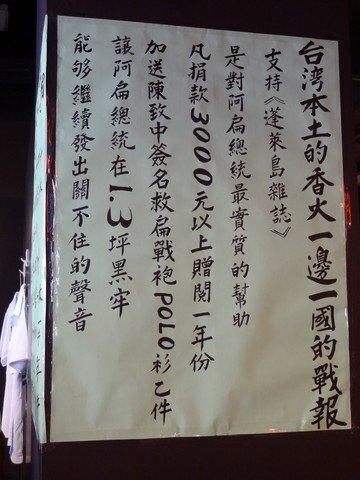 台湾本土的香火一邊一國的戰報
支持《蓬萊島雜誌》
是對阿扁總統最實質的幫助
凡捐款3000元以上贈閱一年份
加送陳致中簽名救扁戰袍POLO衫乙件
讓阿扁總統在1.3坪黑牢
能够繼續發出關不住的聲音